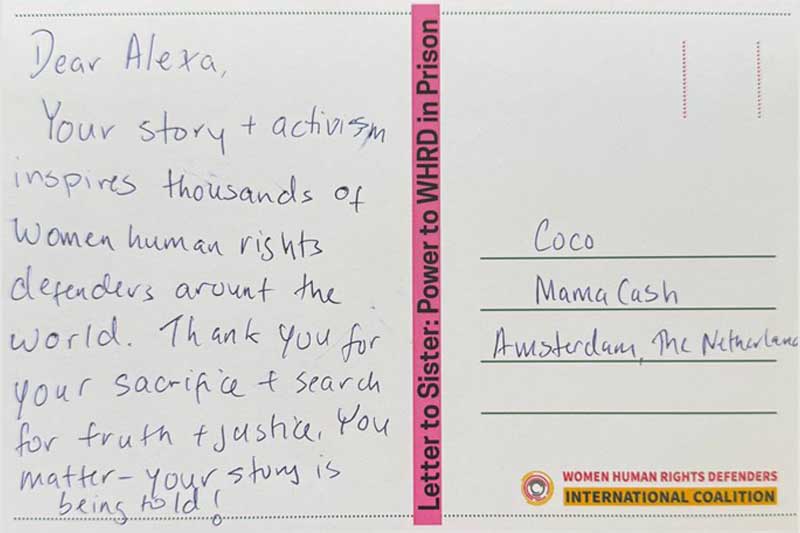 Dear Alexa,
Your story + activism
inspires thousands of
women human rights
defenders arount the
world. Thank you for
your sacrifice + search
for truth + justice. You
matter – your story is
being told!
Letter to Sister: Power to WHRD in Prison
Coco
Mama Cash
Amsterdam, The Netherland
WOMEN HUMAN RIGHTS DEFENDERS
INTERNATIONAL COALITION